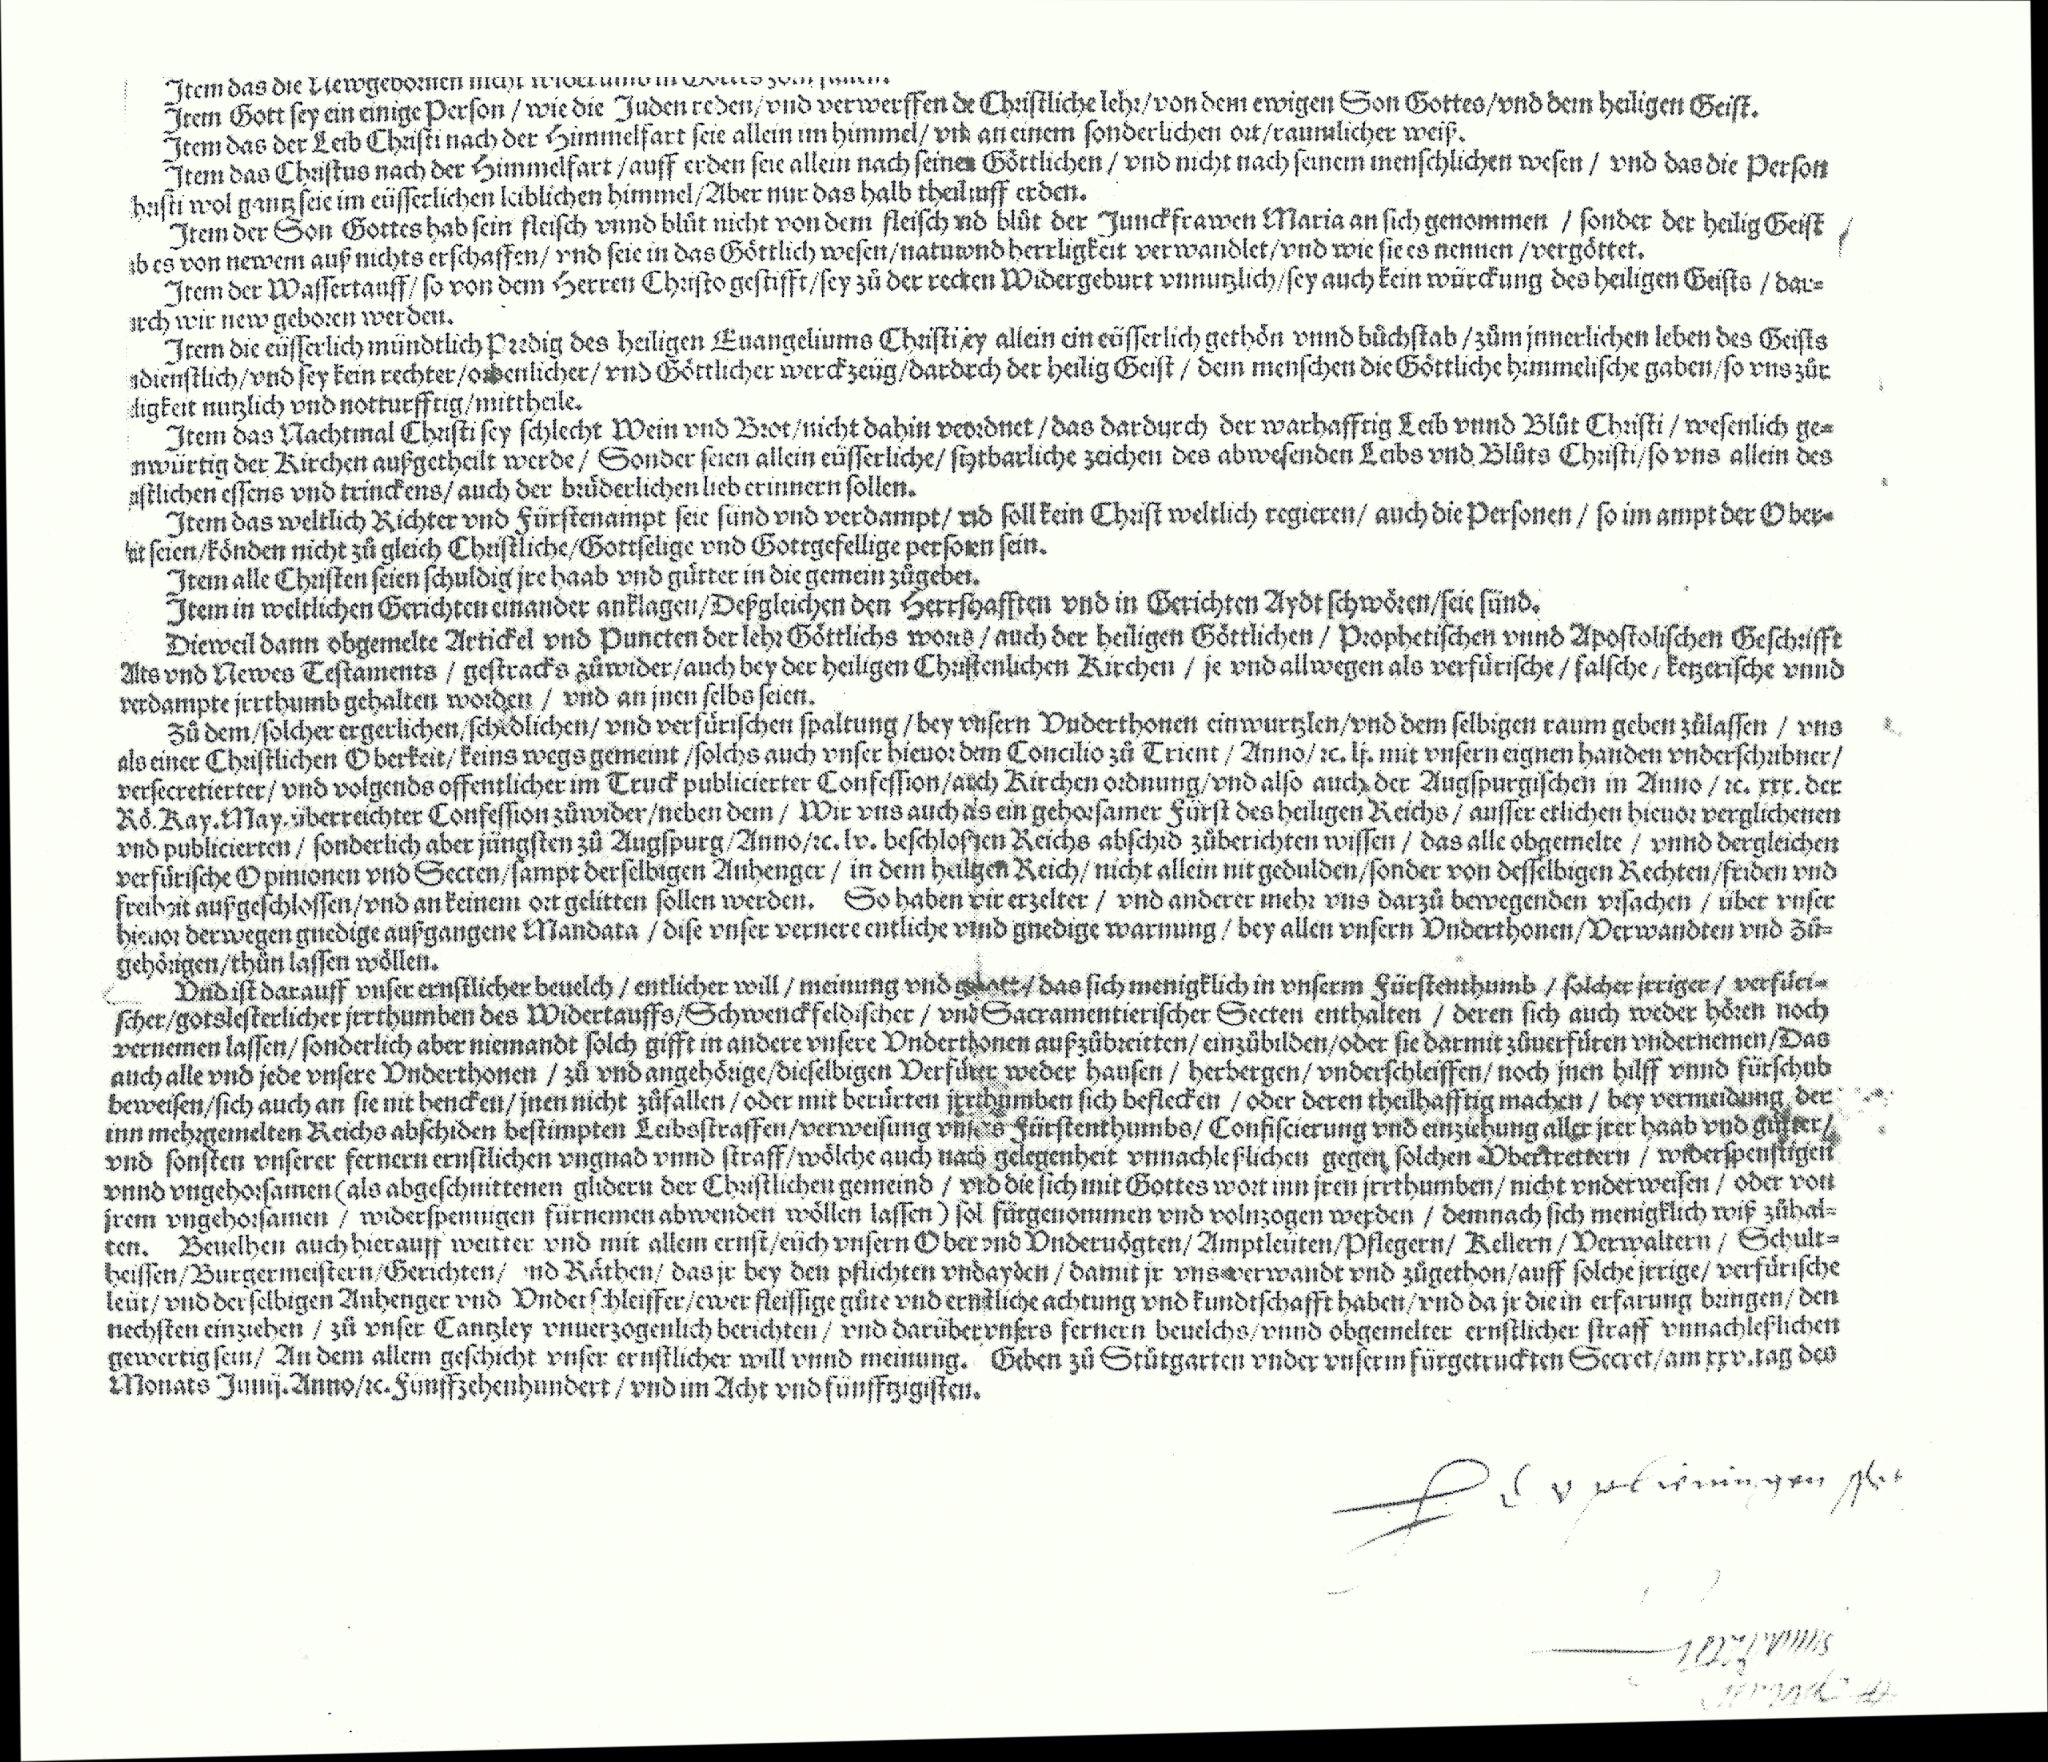 Item das die Newgebornen nicht
Item Gott sey ein einige Person / wie die Juden reden / vnd verwerffen de Christliche lehr / von dem ewigen Son Gottes / vnd dem heiligen Geist.
Item das der Leib Christi nach der Himmelfart seie allein im himmel / vnd an einem sonderlichen ort / raumlicher weiß.
Item das Christus nach der Himmelfart / auff erden seie allein nach seinem Göttlichen / vnd nicht nach seinem menschlichen wesen / vnd das die Person
hristi wol gantz seie im eüsserlichen leiblichen himmel / Aber nur das halb theil auff erden.
Item der Son Gottes hab sein fleisch vnnd blůt nicht von dem fleisch vnd blůt der Junckfrawen Maria an sich genommen / sonder der heilig Geist
ab es von newem auß nichts erschaffen / vnd seie in das Göttlich wesen / natur vnd herrligkeit verwandlet / vnd wie sie es nennen / vergöttet.
Item der Wassertauff / so von dem Herren Christo gestifft / sey zů der rechten Widergeburt vnnutzlich / sey auch kein würckung des heiligen Geists / dar=
urch wir new geboren werden.
Item die eüsserlich mündtlich Predig des heiligen Euangeliums Christi sey allein ein eüsserlich gethön vnnd bůchstab / zům jnnerlichen leben des Geists
ndienstlich / vnd sey kein rechter / ordenlicher / vnd Göttlicher werckzeüg / dardurch der heilig Geist / dem menschen die Göttliche himmelische gaben / so vns zůr
ligkeit nutzlich vnd notturfftig / mittheile.
Item das Nachtmal Christi sey schlecht Wein vnd Brot / nicht dahin verordnet / das dardurch der warhafftig Leib vnnd Blůt Christi / wesenlich ge=
nwürtig der Kirchen außgetheilt werde / Sonder seien allein eüsserliche / sichtbarliche zeichen des abwesenden Leibs vnd Blůts Christi / so vns allein des
istlichen essens vnd trinckens / auch der brüderlichen lieb erinnern sollen.
Item das weltlich Richter vnd Fürstenampt seie sünd vnd verdampt / vnd soll kein Christ weltlich regieren / auch die Personen / so im ampt der Ober=
keit seien / könden nicht zů gleich Christliche / Gottselige vnd Gottgefellige personen sein.
Item alle Christen seien schuldig jre haab vnd gütter in die gemein zůgeben.
Item in weltlichen Gerichten einander anklagen / Deßgleichen den Herrschafften vnd in Gerichten Aydt schwören / seie sünd.
Dieweil dann obgemelte Artickel vnd Puncten der lehr Göttlichs worts / auch der heiligen Göttlichen / Prophetischen vnnd Apostolischen Geschrifft
Alts vnd Newes Testaments / gestracks zůwider / auch bey der heiligen Christenlichen Kirchen / je vnd allwegen als verfürische / falsche / ketzerische vnnd
verdampte jrrthumb gehalten worden / vnd an jnen selbs seien.
Zů dem / solcher ergerlichen / schedlichen / vnd verfürischen spaltung / bey vnsern Vnderthonen einwurtzlen / vnd dem selbigen raum geben zůlassen / vns
als einer Christlichen Oberkeit / keins wegs gemeint / solchs auch vnser hieuor dem Concilio zů Trient / Anno / ꝛc. lj. mit vnsern eignen handen vnderschribner /
versecretierter / vnd volgends offentlicher im Truck publicierter Confession / auch Kirchen ordnung / vnd also auch der Augspurgischen in Anno / ꝛc. xxx. der
Rö. Kay. May. überreichter Confession zůwider / neben dem / Wir vns auch als ein gehorsamer Fürst des heiligen Reichs / ausser etlichen hieuor verglichenen
vnd publicierten / sonderlich aber jüngsten zů Augspurg / Anno / ꝛc. lv. beschloßnen Reichs abschid zůberichten wissen / das alle obgemelte / vnnd dergleichen
verfürische Opinionen vnd Secten / sampt derselbigen Anhenger / in dem heiligen Reich / nicht allein nit gedulden / sonder von desselbigen Rechten / friden vnd
freiheit außgeschlossen / vnd an keinem ort gelitten sollen werden. So haben wir erzelter / vnd anderer mehr vns darzů bewegenden vrsachen / über vnser
hieuor derwegen gnedige außgangene Mandata / dise vnser vernere entliche vnnd gnedige warnung / bey allen vnsern Vnderthonen / Verwandten vnd Zů=
gehörigen / thůn lassen wöllen.
Vnd ist darauff vnser ernstlicher beuelch / entlicher will / meinung vnd gebott / das sich menigklich in vnserm Fürstenthumb / solcher jrriger / verfüri=
scher / gotslesterlicher jrrthumben des Widertauffs / Schwenckfeldischer / vnd Sacramentierischer Secten enthalten / deren sich auch weder hören noch
vernemen lassen / sonderlich aber niemandt solch gifft in andere vnsere Vnderthonen außzůbreitten / einzůbilden / oder sie darmit zůuerfüren vndernemen / Das
auch alle vnd jede vnsere Vnderthonen / zů vnd angehörige / dieselbigen Verfürer weder hausen / herbergen / vnderschleiffen / noch jnen hilff vnnd fürschub
beweisen / sich auch an sie nit hencken / jnen nicht zůfallen / oder mit berürten jrrthumben sich beflecken / oder deren theilhafftig machen / bey vermeidung der
inn mehrgemelten Reichs abschiden bestimpten Leibsstraffen / verweisung vnsers Fürstenthumbs / Confiscierung vnd einziehung aller jrer haab vnd gütter /
vnd sonsten vnserer fernern ernstlichen vngnad vnnd straff / wölche auch nach gelegenheit vnnachleßlichen gegen solchen Vbertrettern / widerspenstigen
vnnd vngehorsamen (als abgeschnittenen glidern der Christlichen gemeind / vnd die sich mit Gottes wort inn jren jrrthumben / nicht vnderweisen / oder von
jrem vngehorsamen / widerspennigen fürnemen abwenden wöllen lassen) sol fürgenommen vnd volnzogen werden / demnach sich menigklich wiß zůhal=
ten. Beuelhen auch hierauff weitter vnd mit allem ernst / euch vnsern Ober vnd Vnderuögten / Amptleüten / Pflegern / Kellern / Verwaltern / Schult=
heissen / Burgermeistern / Gerichten / vnd Räthen / das jr bey den pflichten vnd ayden / damit jr vns verwandt vnd zůgethon / auff solche jrrige / verfürische
leüt / vnd derselbigen Anhenger vnd Vnderschleiffer / ewer fleissige gůte vnd ernstliche achtung vnd kundtschafft haben / vnd da jr die in erfarung bringen / den
nechsten einziehen / zů vnser Cantzley vnuerzogenlich berichten / vnd darüber vnsers fernern beuelchs / vnnd obgemelter ernstlicher straff vnnachleßlichen
gewertig sein / An dem allem geschicht vnser ernstlicher will vnnd meinung. Geben zů Stůtgarten vnder vnserm fürgetruckten Secret / am xxv. tag des
Monats Junij. Anno / ꝛc. Fünffzehenhundert / vnd im Acht vnd fünfftzigisten.
v plieningen